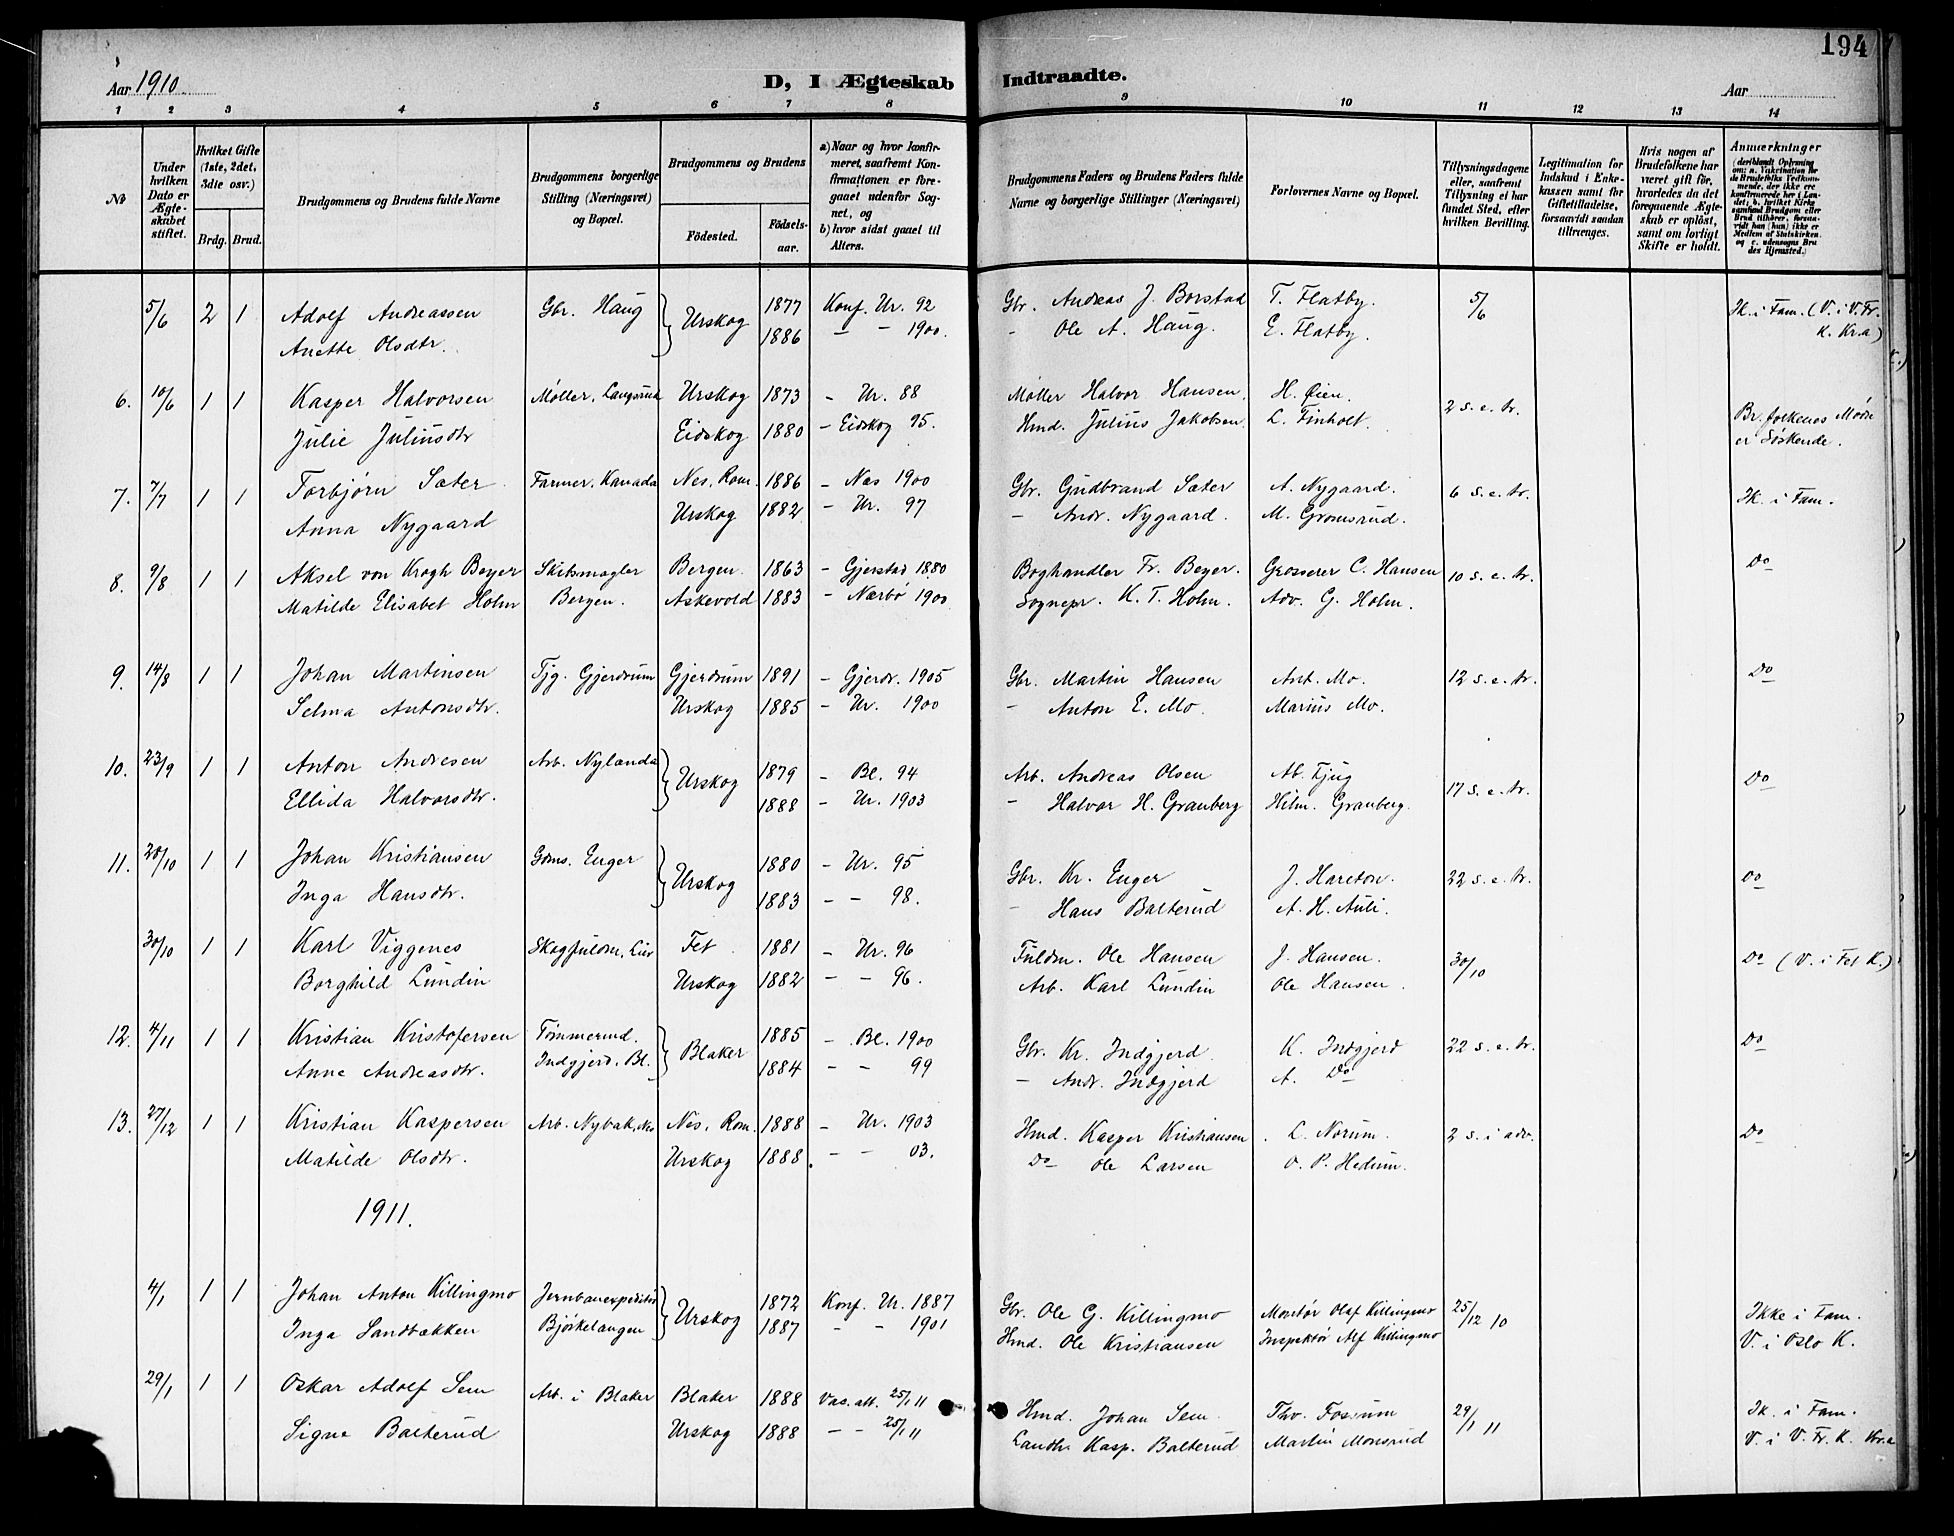 194
Aar 1910 D, I Ægteskab Indtraadte. Aar
1 2 3 4 5 6 7 8 9 10 11 12 13 14
No
Under hvilken Dato er Ægteskabet stiftet.
Hvilket Gifte (1ste, 2det, 3die osv.)
Brdg. Brud.
Brudgommens og Brudens fulde Navne
Brudgommens borgerlige Stilling (Næringsvei) og Bopæl.
Brudgommens og Brudens
Födested. Födselsaar.
a) Naar og hvor konfirmeret, saafremt Konfirmationen er foregaaet udenfor Sognet, og
b) hvor sidst gaaet til Alters.
Brudgommens Faders og Brudens Faders fulde Navne og borgerlige Stillinger (Næringsvei)
Forlovernes Navne og Bopæl.
Tillysningsdagene eller, saafremt Tillysning ei har fundet Sted, efter hvilken Bevilling.
Legitimation for Indskud i Enkekassen samt for Giftetilladelse, forsaavidt saadan tiltrænges.
Hvis nogen af Brudefolkene har været gift før, hvorledes da det foregaaende Ægteskab er opløst, samt om lovligt Skifte er holdt.
Anmærkninger
5/6 2 1 Adolf Andreassen Gbr. Haug Urskog 1877 Konf. Ur. 92 Gbr. Andreas J. Borstad T. Flatby. 5/6 Ik. i Fam. (V. i V. Fr.
Anette Olsdtr. 1886 — — 1900. - Ole A. Haug. E. Flatby. K. Kr.a)
6. 10/6 1 1 Kasper Halvorsen Møller, Langsrud Urskog 1873 - Ur. 88 Møller Halvor Hansen. H. Øien. 2 s. e. tr. Br. folkenes Mødre
Julie Juliusdtr Eidskog 1880 - Eidskog 95. Hmd. Julius Jakobsen L. Finholt. er Søskende.
7. 7/7 1 1 Torbjørn Sæter Farmer, Kanada Nes, Rom. 1886 - Nes 1900 Gbr. Gudbrand Sæter A. Nygaard. 6 s. e. tr. Ik. i Fam.
Anna Nygaard Urskog 1882 - Ur. 97 - Andr. Nygaard. M. Gromsrud.
8. 9/8 1 1 Aksel von Krogh Beyer Skibsmægler Bergen. 1863 - Gjerstad 1880 Boghandler Fr. Beyer. Grosserer C. Hansen 10 s. e. tr. Do
Matilde Elisabet Holm Bergen. Askevold 1883 - Nærbø 1900 Sognepr. K. T. Holm. Adv. G. Holm.
9. 14/8 1 1 Johan Martinsen Tjg. Gjerdrum Gjerdrum 1891 - Gjerdr. 1905 Gbr. Martin Hansen Ant. Mo. 12 s. e. tr. Do
Selma Antonsdtr. Urskog 1885 - Ur. 1900 - Anton E. Mo. Marius Mo.
10. 23/9 1 1 Anton Andresen Arb. Nylanda Urskog 1879 - Bl. 94 Arb. Andreas Olsen Ab. Tjug 17 s. e. tr. Do
Ellida Halvorsdtr. 1888 - Ur. 1903 - Halvor H. Granberg Hilm. Granberg.
11. 20/10 1 1 Johan Kristiansen Gdms. Enger Urskog 1880 - Ur. 95 Gbr. Kr. Enger J. Hareton. 22 s. e. tr. Do
Inga Hansdtr. 1883 - - 98. - Hans Balterud A. H. Auli.
30/10 1 1 Karl Viggenes Skogfuldm. Lier Fet 1881 - Ur. 96 Fuldm. Ole Hansen J. Hansen. 30/10 Do (V. i Fet K.)
Borghild Lundin Urskog 1882 - - 96. Arb. Karl Lundin Ole Hansen.
12. 4/11 1 1 Kristian Kristofersen Tømmermd. Blaker 1885 - Bl. 1900 Gbr. Kr. Indgjerd K. Indgjerd 22 s. e. tr. Do
Anne Andreasdtr. Indgjerd. Bl. 1884 - - 99 - Andr. Indgjerd A. Do
13. 27/12 1 1 Kristian Kaspersen Arb. Nybak, Nes Nes, Rom. 1888 - Ur. 1903 Hmd. Kasper Kristiansen L. Norum. 2 s. i adv. Do
Matilde Olsdtr. Urskog 1888. - - 03. Do Ole Larsen O. P. Hedum.
1911.
4/1 1 1 Johan Anton Killingmo Jernbaneexpeditør Urskog 1872 Konf. Ur. 1887 Gbr. Ole G. Killingmo Montør Olaf Killingmo 25/12 10 Ikke i Fam.
Inga Sandbækken Bjørkelangen 1887 - - 1901 Hmd. Ole Kristiansen Inspektør Alf Killingmo V. i Oslo K.
29/1 1 1 Oskar Adolf Sem Arb. i Blaker Blaker 1888 Vas. att. 25/1 11 Hmd. Johan Sem. Thv. Fossum 29/1 11 Ik. i Fam.
Signe Balterud Urskog 1888 - - 25/1 11 Landh. Kasp. Balterud Martin Monsrud V. i V. Fr. K. Kr.a